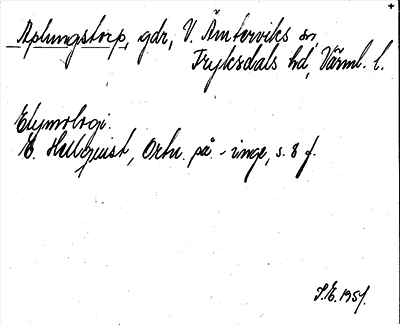 Aplungstorp, gdr, V. Ämterviks sn,
Fryksdals hd, Värml. l.
Etymologi.
E. Hellquist, Ortn. på -inge, s. 8 f.
S.E. 1951.